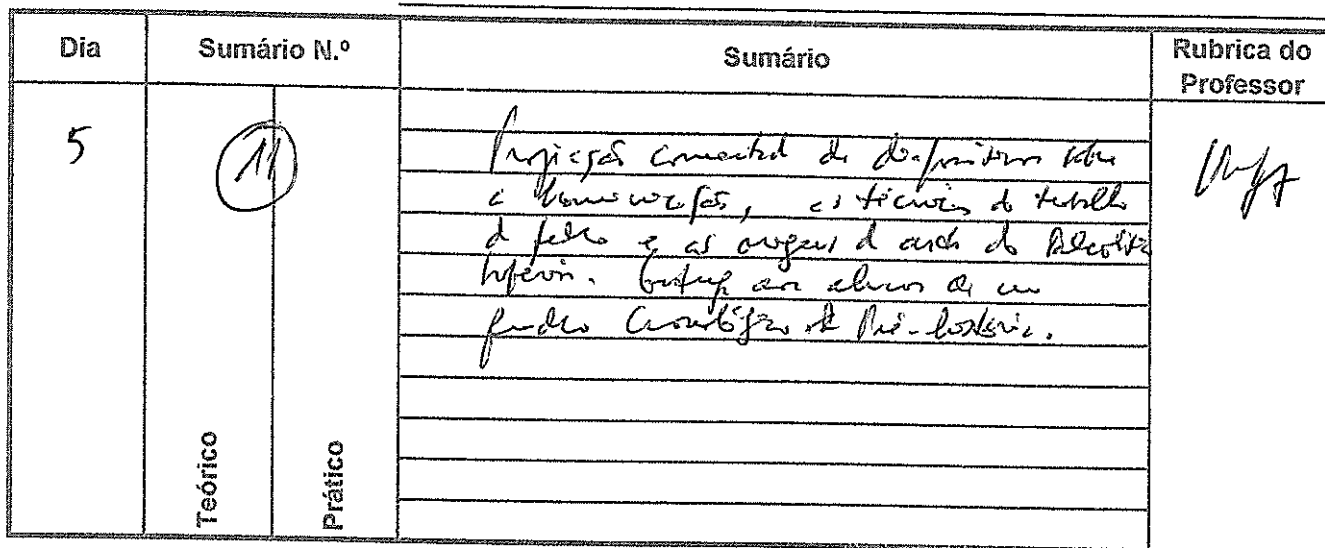 Dia
Sumário N.º
Sumário
Rubrica do
Professor
5
11
Projecção comentada de diapositivos sobre
a hominização, as técnicas do trabalho
da pedra e as origens da arte do Paleolítico
Superior. Entrega aos alunos de um
quadro cronológico da Pré-história.
Teórico
Prático